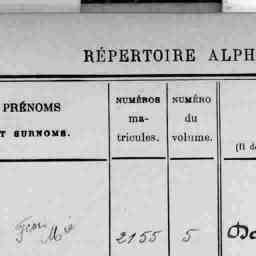 RÉPERTOIRE ALPH
PRÉNOMS
T SURNOMS.
NUMÉROS
ma-
tricules.
NUMÉRO
du
volume.
(Il d
Jean Mie
2155
5